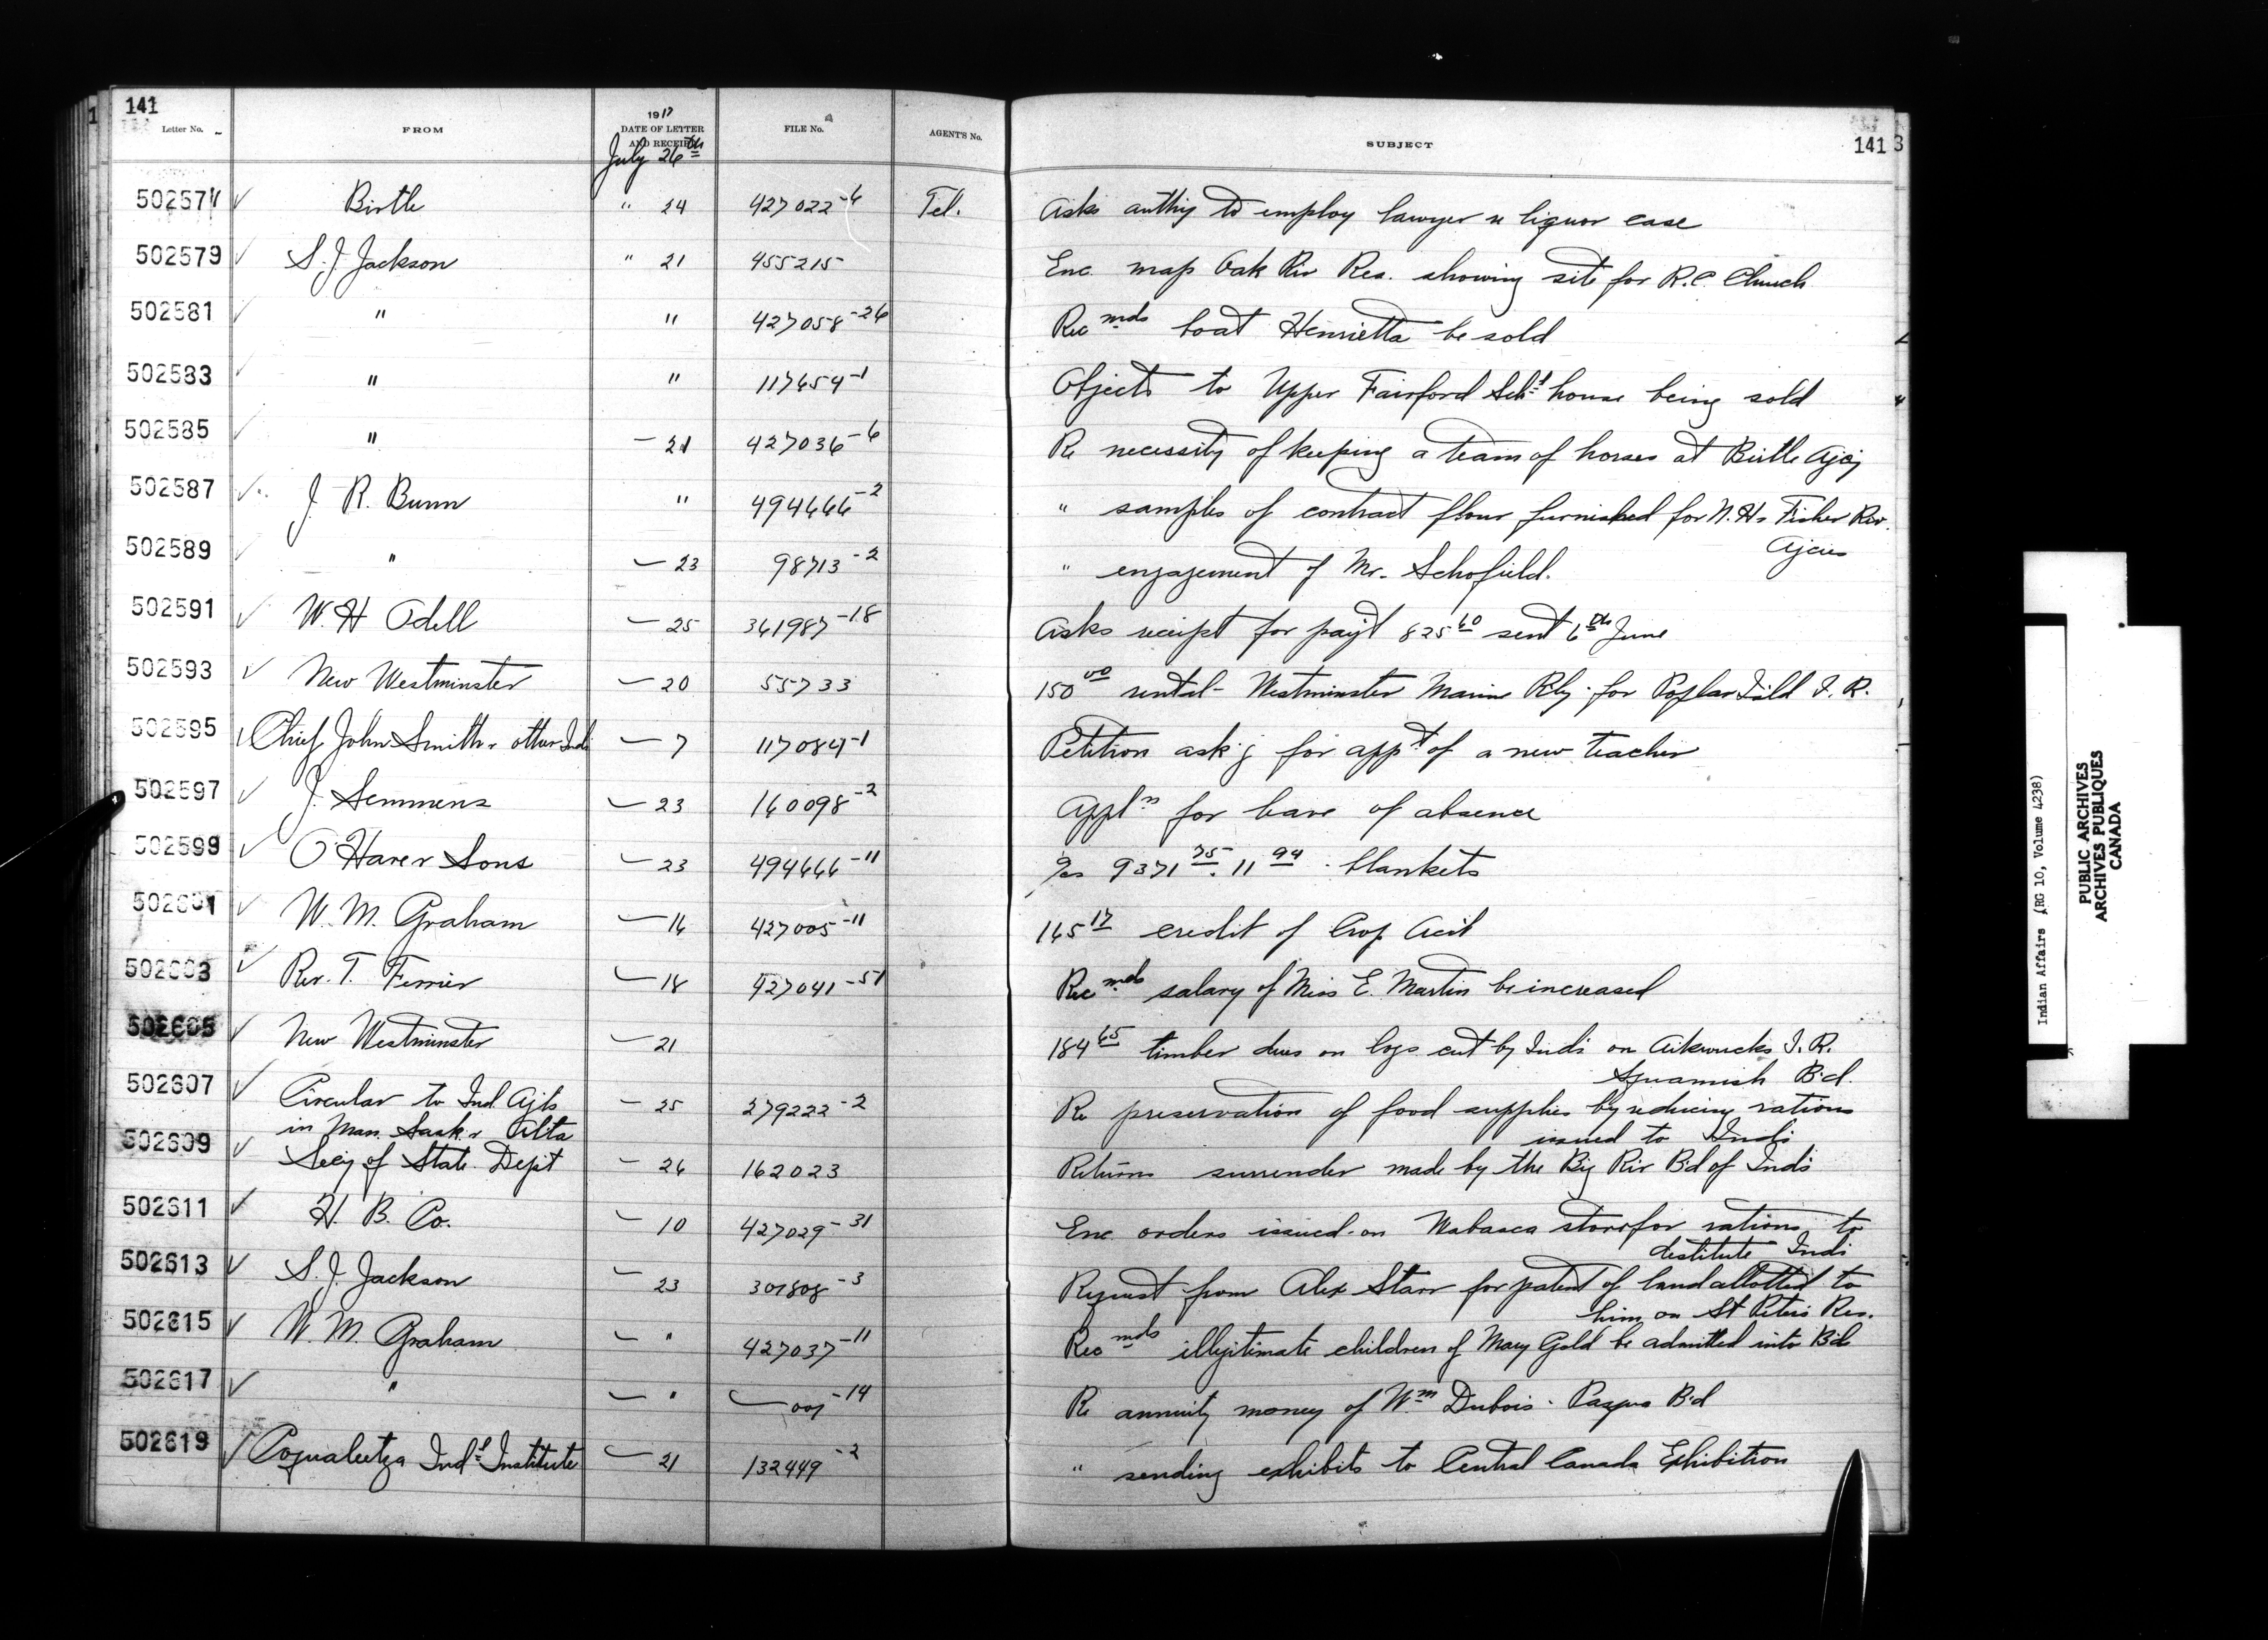 141
Letter No.
FROM
1917
DATE OF LETTER
AND RECEIPT
July 26th
FILE No.
AGENT'S No.
SUBJECT
141
502577 Birtle " 24 427022-6 Tel. Asks authy to employ lawyer re liquor case
502579 S. J. Jackson " 21 455215 Enc. map Oak Riv Res. showing site for R.C. Church
502581 " " 427058-26 Recmds boat Henrietta be sold
502583 " " 117654-1 Objects to Upper Fairford Schl house being sold
502585 " 21 427036-6 Re necessity of keeping a team of horses at Birtle Agcy
502587 J. R. Bunn " 494666-2 " samples of contract flour furnished for N.H. & Fisher Riv.
Agcies
502589 " 23 98713-2 " engagement of Mr. Schofield.
502591 W. H Odell 25 361987-18 Asks receipt for payt 825 60 sent 6th June
502593 New Westminster 20 55733 150 00 rental - Westminster Marine Rly. for Poplar Isld I. R.
502595 Chief John Smith & other Inds 7 117084-1 Petition ask'g for appt of a new teacher
502597 J. Semmens 23 160098-2 Appln for leave of absence
502599 O'Hara & Sons 23 494666-11 9371 75. 11 94 . blankets
502601 W. M. Graham 16 427005-11 165 17 credit of Crop Acct
502603 Rev. T. Ferrier 18 427041-51 Recmds salary of Miss E. Martin be increased
502605 New Westminster 21 184 65 timber dues on logs cut by Inds on Aikwucks I. R.
Squamish Bd.
502607 Circular to Ind. Agts
in Man. Sask & Alta 25 279222-2 Re preservation of food supplies by reducing rations
issued to Inds
502609 Secy of State Dept 26 162023 Returns surrender made by the Big Riv Bd of Inds
502611 H. B. Co. 10 427029-31 Enc orders issued on Wabasca store for rations to
destitute Inds
502613 S. J. Jackson 23 301808-3 Request from Alex Starr for patent of land allotted to
him on St Peters Res.
502615 W. M. Graham " 427037-11 Recmds illegitimate children of Mary Gold be admitted into Bd
502617 " " 007-14 Re annuity money of Wm Dubois - Pasqua Bd
502619 Coqualeetza Indl Institute 21 132449-2 " sending exhibits to Central Canada Exhibition
Indian Affairs (RG 10, Volume 4238)
PUBLIC ARCHIVES
ARCHIVES PUBLIQUES
CANADA